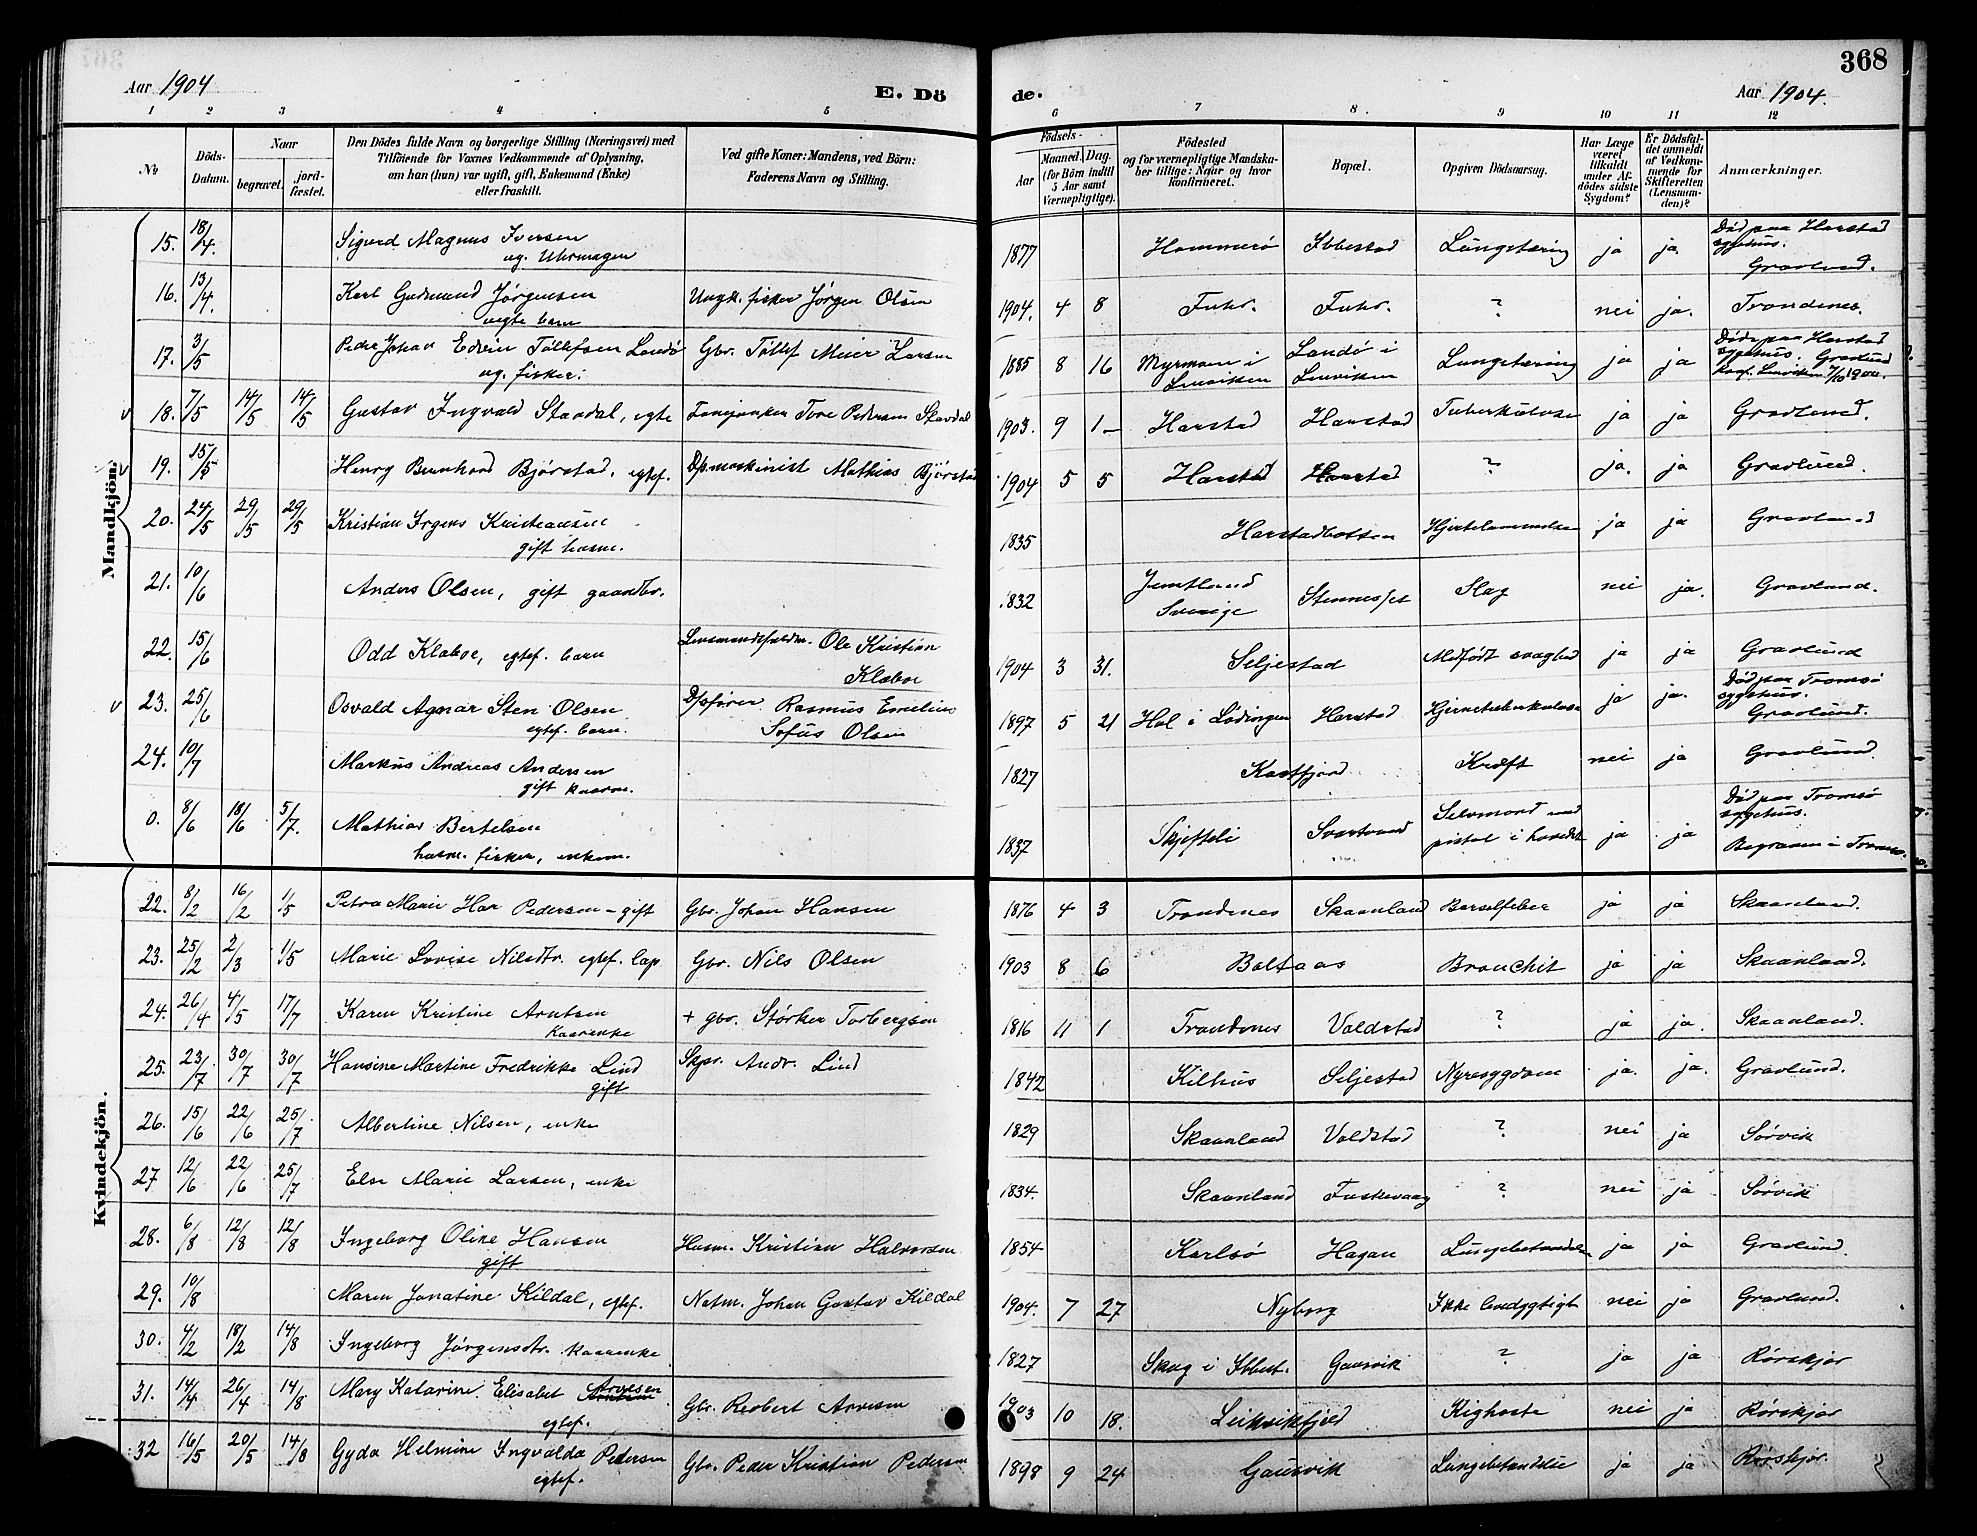 368
Aar 1904
E. Dö de.
Aar 1904.
1 2 3 4 5 6 7 8 9 10 11 12
No
Döds-Datum.
Naar
begravet.
jordfæstet.
Den Dödes fulde Navn og borgerlige Stilling (Næringsvei) med
Tilföiende for Voxnes Vedkommende af Oplysning,
om han (hun) var ugift, gift, Enkemand (Enke)
eller fraskilt.
Ved gifte Koner: Mandens, ved Börn:
Faderens Navn og Stilling.
Födsels-
Aar
Maaned. Dag.
(for Börn indtil
5 Aar samt
Værnepligtige).
Födested
og for værnepligtige Mandska-
ber tillige: Naar og hvor
konfirmeret.
Bopæl.
Opgiven Dödsaarsag.
Har Læge
været
tilkaldt
under Af-
dödes sidste
Sygdom?
Er Dödsfal-
det anmeldt
af Vedkom-
mende for
Skifteretten
(Lensman-
den)?
Anmærkninger.
Mandkjön.
15. 18/4 Sigurd Magnus Iversen 1877 Hammerø Ibbestad Lungetæring ja ja. Död paa Harstad
ug. Uhrmager sygehus.
Gravlund.
16. 13/4. Karl Gudmund Jørgensen Ungk. fisker Jørgen Olsen 1904. 4 8 Fuhr. Fuhr. ? nei ja. Trondenes.
uegte barn
17. 3/5 Peder Johan Edvin Tollefsen Landø Gbr. Tollef Meier Larsen 1885 8 16 Myrmann i Landø i Lungetæring ja ja Døde paa Harstad
ug. fisker. Lenviken Lenviken sygehus. Gravlund
Konf. Lenviken 7/10 1900.
v 18. 7/5 14/5 14/5 Gustav Ingvald Stavdal, egte Tore Pedersen Skavdal 1903. 9 1 Harstad Harstad Tuberkulose ja ja Gravlund.
v 19. 15/5 Henry Bernhard Bjørstad, egtef. D/s maskinist Mathias Bjørstad 1904 5 5 Harstad Harstad ? ja. ja Gravlund.
20. 24/5 29/5 29/5 Kristian Irgens Kristiansen 1835 Harstadbotten Hjertelammelse ja ja Gravlund
gift husm.
21. 10/6 Anders Olsen, gift gaardbr. 1832 Jemtland Stennesset Slag nei ja. Gravlund.
Sverige
22. 15/6 Odd Klæboe, egtef. barn Lensmandsfuldm. Ole Kristian 1904 3 31. Seljestad Medfødt svaghed ja ja Gravlund
Klæboe
v 23. 25/6 Osvald Agnar Sten Olsen D/sfører Rasmus Emelius 1897 5 21 Hol i Lödingen Harstad Hjernetuberkulose ja ja. Död paa Tromsö
egtef. barn. Sofus Olsen sygehus.
Gravlund.
24. 10/7 Markus Andreas Andersen 1827 Kasfjord Kræft nei ja Gravlund
gift kaarm.
0. 8/6 18/6 5/7. Mathias Bertelsen 1837 Skjefteli Svartvand Selvmord med ja ja Död paa Tromsö
husm. fisker, enkem. pistol i hovedet sygehus.
Begraven i Tromsø.
Kvindekjön.
22. 8/2 16/2 1/5 Petra Marie Har Pedersen - gift Gbr. Johan Hansen 1876 4 3 Trondenes Skaanland Barselfeber ja ja Skaanland.
23. 25/2 2/3 1/5 Marie Lovise Nilsdtr. egtef. lap Gbr. Nils Olsen 1903 8 6 Boltaas Bronchit ja ja Skaanland.
24. 26/4 4/5 17/7 Karen Kristine Arntsen + gbr. Størker Torbergsen 1816 11 1 Trondenes Voldstad ? ja ja. Skaanland.
kaarenke
25. 23/7 30/7 30/7 Hansine Martine Fredrikke Lind Skpr. Andr. Lind 1842 Kilhus Seljestad Nyresygdom ja. ja. Gravlund.
gift
26. 15/6 22/6 25/7 Albertine Nilsen, enke 1829 Skaanland Voldstad ? nei ja Sørvik
27 12/6 22/6 25/7 Else Marie Larsen, enke 1834. Skaanland Fuskevaag ? nei ja Sørvik
28. 6/8 12/8 12/8 Ingeborg Oline Hansen Husm. Kristian Halvorsen 1854 Karlsø Hagan Lungebetændelse ja ja Gravlund.
gift
29. 10/8 Maren Jonatine Kildal, egtef. Johan Gustav Kildal 1904. 7 27 Nyborg Ikke levedygtigt nei ja Gravlund.
30. 4/2 18/2 14/8 Ingeborg Jørgensdtr. kaarenke 1827 Skog i Ibbest. Gausvik ? ja ja Rørskjær
31. 14/4 26/4 14/8 Mary Katarine Elisabet Arvesen Gbr. Robert Arvesen 1903 10 18. Leikvikfjeld Kighoste nei ja Rørskjær
egtef.
32 16/5 20/5 14/8 Gyda Helmine Ingvalda Pedersen Gbr. Peder Kristian Pedersen 1898 9 24 Gausvik Lungebetændelse ja ja Rørskjær.
egtef.